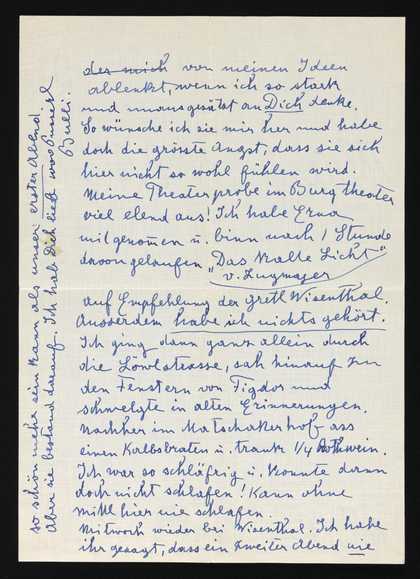 des mich von meinen Ideen
ablenkt, wenn ich so stark
und unausgesetzt an Dich denke.
So wünsche ich sie mir her und habe
doch die grösste Angst, dass sie sich
hier nicht so wohl fühlen wird.
Meine Theaterprobe im Burgtheater
viel elend aus! Ich habe Erna
mitgenommen u. binn nach 1 Stunde
davon gelaufen „Das Kalte Licht"
v. Zugmajer
auf Empfehlung der Gretl Wisenthal.
Ausserdem habe ich nichts gehört.
Ich ging dann ganz allein durch
die Löwlstrasse, sah hinauf zu
den Fenstern von Figdor und
schwelgte in alten Erinnerungen.
Nachher im Matschakerhof ass
einen Kalbsbraten u. trank 1/4 Rothwein.
Ich war so schläfrig u. konnte dann
doch nicht schlafen! Kann ohne
Mittl hier nie schlafen.
Mitwoch wieder bei Wisenthal. Ich habe
ihr gesagt, dass ein zweiter Abend nie
so schön mehr sein kann als unser erster Abend.
Aber sie bestand darauf. Ich hab Dich lieb
Bulli.